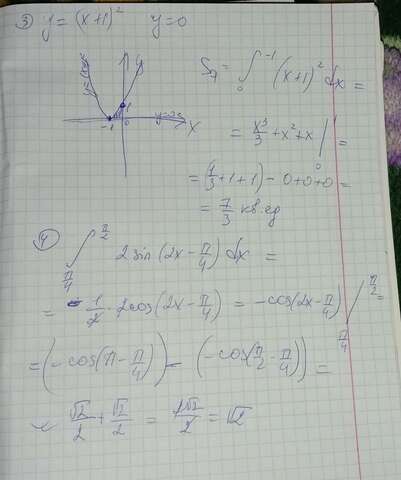 ③ y = (x+1)² y=0
y
1
-1 0 x
S = ∫₀⁻¹ (x+1)² dx =
= x³/3 + x² + x |₀¹ =
= (1/3 + 1 + 1) - 0+0+0 =
= 7/3 кв. ед
④ ∫ π/4 π/2 2 sin (2x - π/4) dx =
= - 1/2 · 2cos (2x - π/4) = - cos(2x - π/4) | π/4 π/2 =
= (- cos(π - π/4)) - (- cos(π/2 - π/4)) =
= √2/2 + √2/2 = 2√2/2 = √2